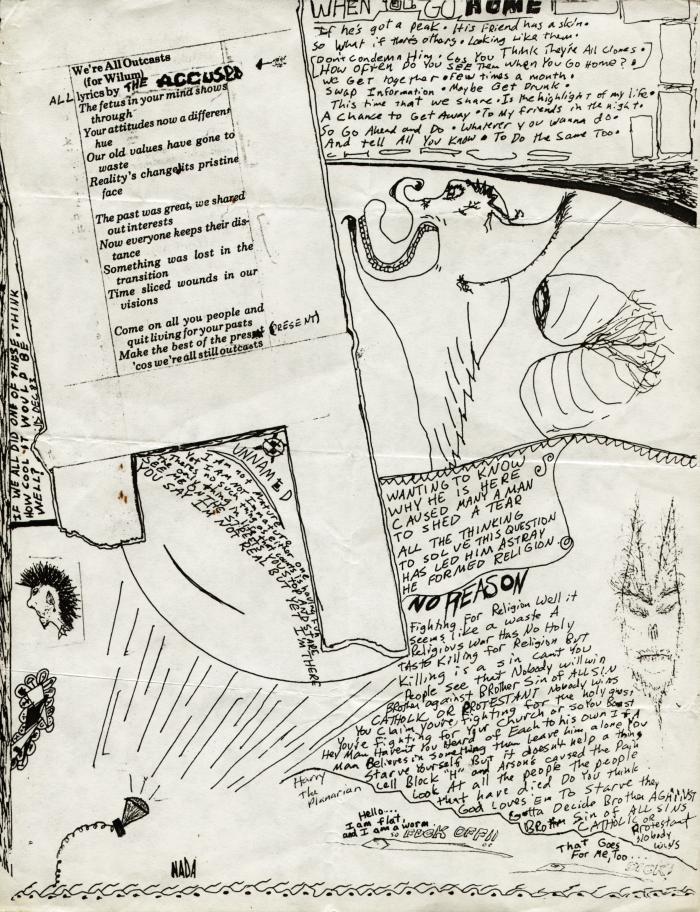 WHEN YOU GO HOME
If he's got a peak • His Friend has a skin •
So What if there's others • Looking Like them •
Don't Condemn Him • Cos You Think They're All Clones •
How often Do You See Them When You Go Home? •
We Get Together • A Few Times a month •
Swap Information • Maybe Get Drunk •
This time that we share • Is the highlight of my life •
A Chance to Get Away • To My friends in the night •
So Go Ahead and Do • Whatever you wanna do •
And tell All You Know • To Do the Same Too •
We're All Outcasts
(for Wilum)
ALL lyrics by THE ACCUSED
The fetus in your mind shows
through
Your attitudes now a different
hue
Our old values have gone to
waste
Reality's change its pristine
face
The past was great, we shared
out interests
Now everyone keeps their dis-
tance
Something was lost in the
transition
Time sliced wounds in our
visions
Come on all you people and
quit living for your pasts
Make the best of the present (PRESENT)
'cos we're all still outcasts
IF WE ALL DID ONE OF THESE • THINK
HOW COOL IT WOULD BE
WELL? 15 DEC 83
UNNAMED
YOU SAY I'M NOT REAL BUT YET I'M THERE
WANTING TO KNOW
WHY HE IS HERE
CAUSED MANY A MAN
TO SHED A TEAR
ALL THE THINKING
TO SOLVE THIS QUESTION
HAS LED HIM ASTRAY
HE FORMED RELIGION
NO REASON
Fighting For Religion Well it
Seems like a waste A
Religious War Has No Holy
TASTE Killing for Religion But
Killing is a sin cant You
People see that Nobody will win
Brother against BRother Sin of ALL SIN
CATHOLIC OR PROTESTANT Nobody Wins
You Claim You're Fighting for the holy guest
You're Fighting for Your Church or so You Boast
Hey Man Havent You Heard of Each to his own If A
Man Believes in Something then Leave him, alone You
Starve Yourself But it doesnt help a thing
Cell Block "H" and Arsons caused the Pain
Look At all the people the people
that have died Do You Think
God Loves Em To Starve they
Gotta Decide Brother AGAINST
Brother Sin of ALL SINS
CATHOLIC OR
Protestant
Nobody
Wins
Harry
The
Planarian
Hello...
I am flat,
and I am a worm
so FUCK OFF!!
That Goes
For Me, Too...
NADA